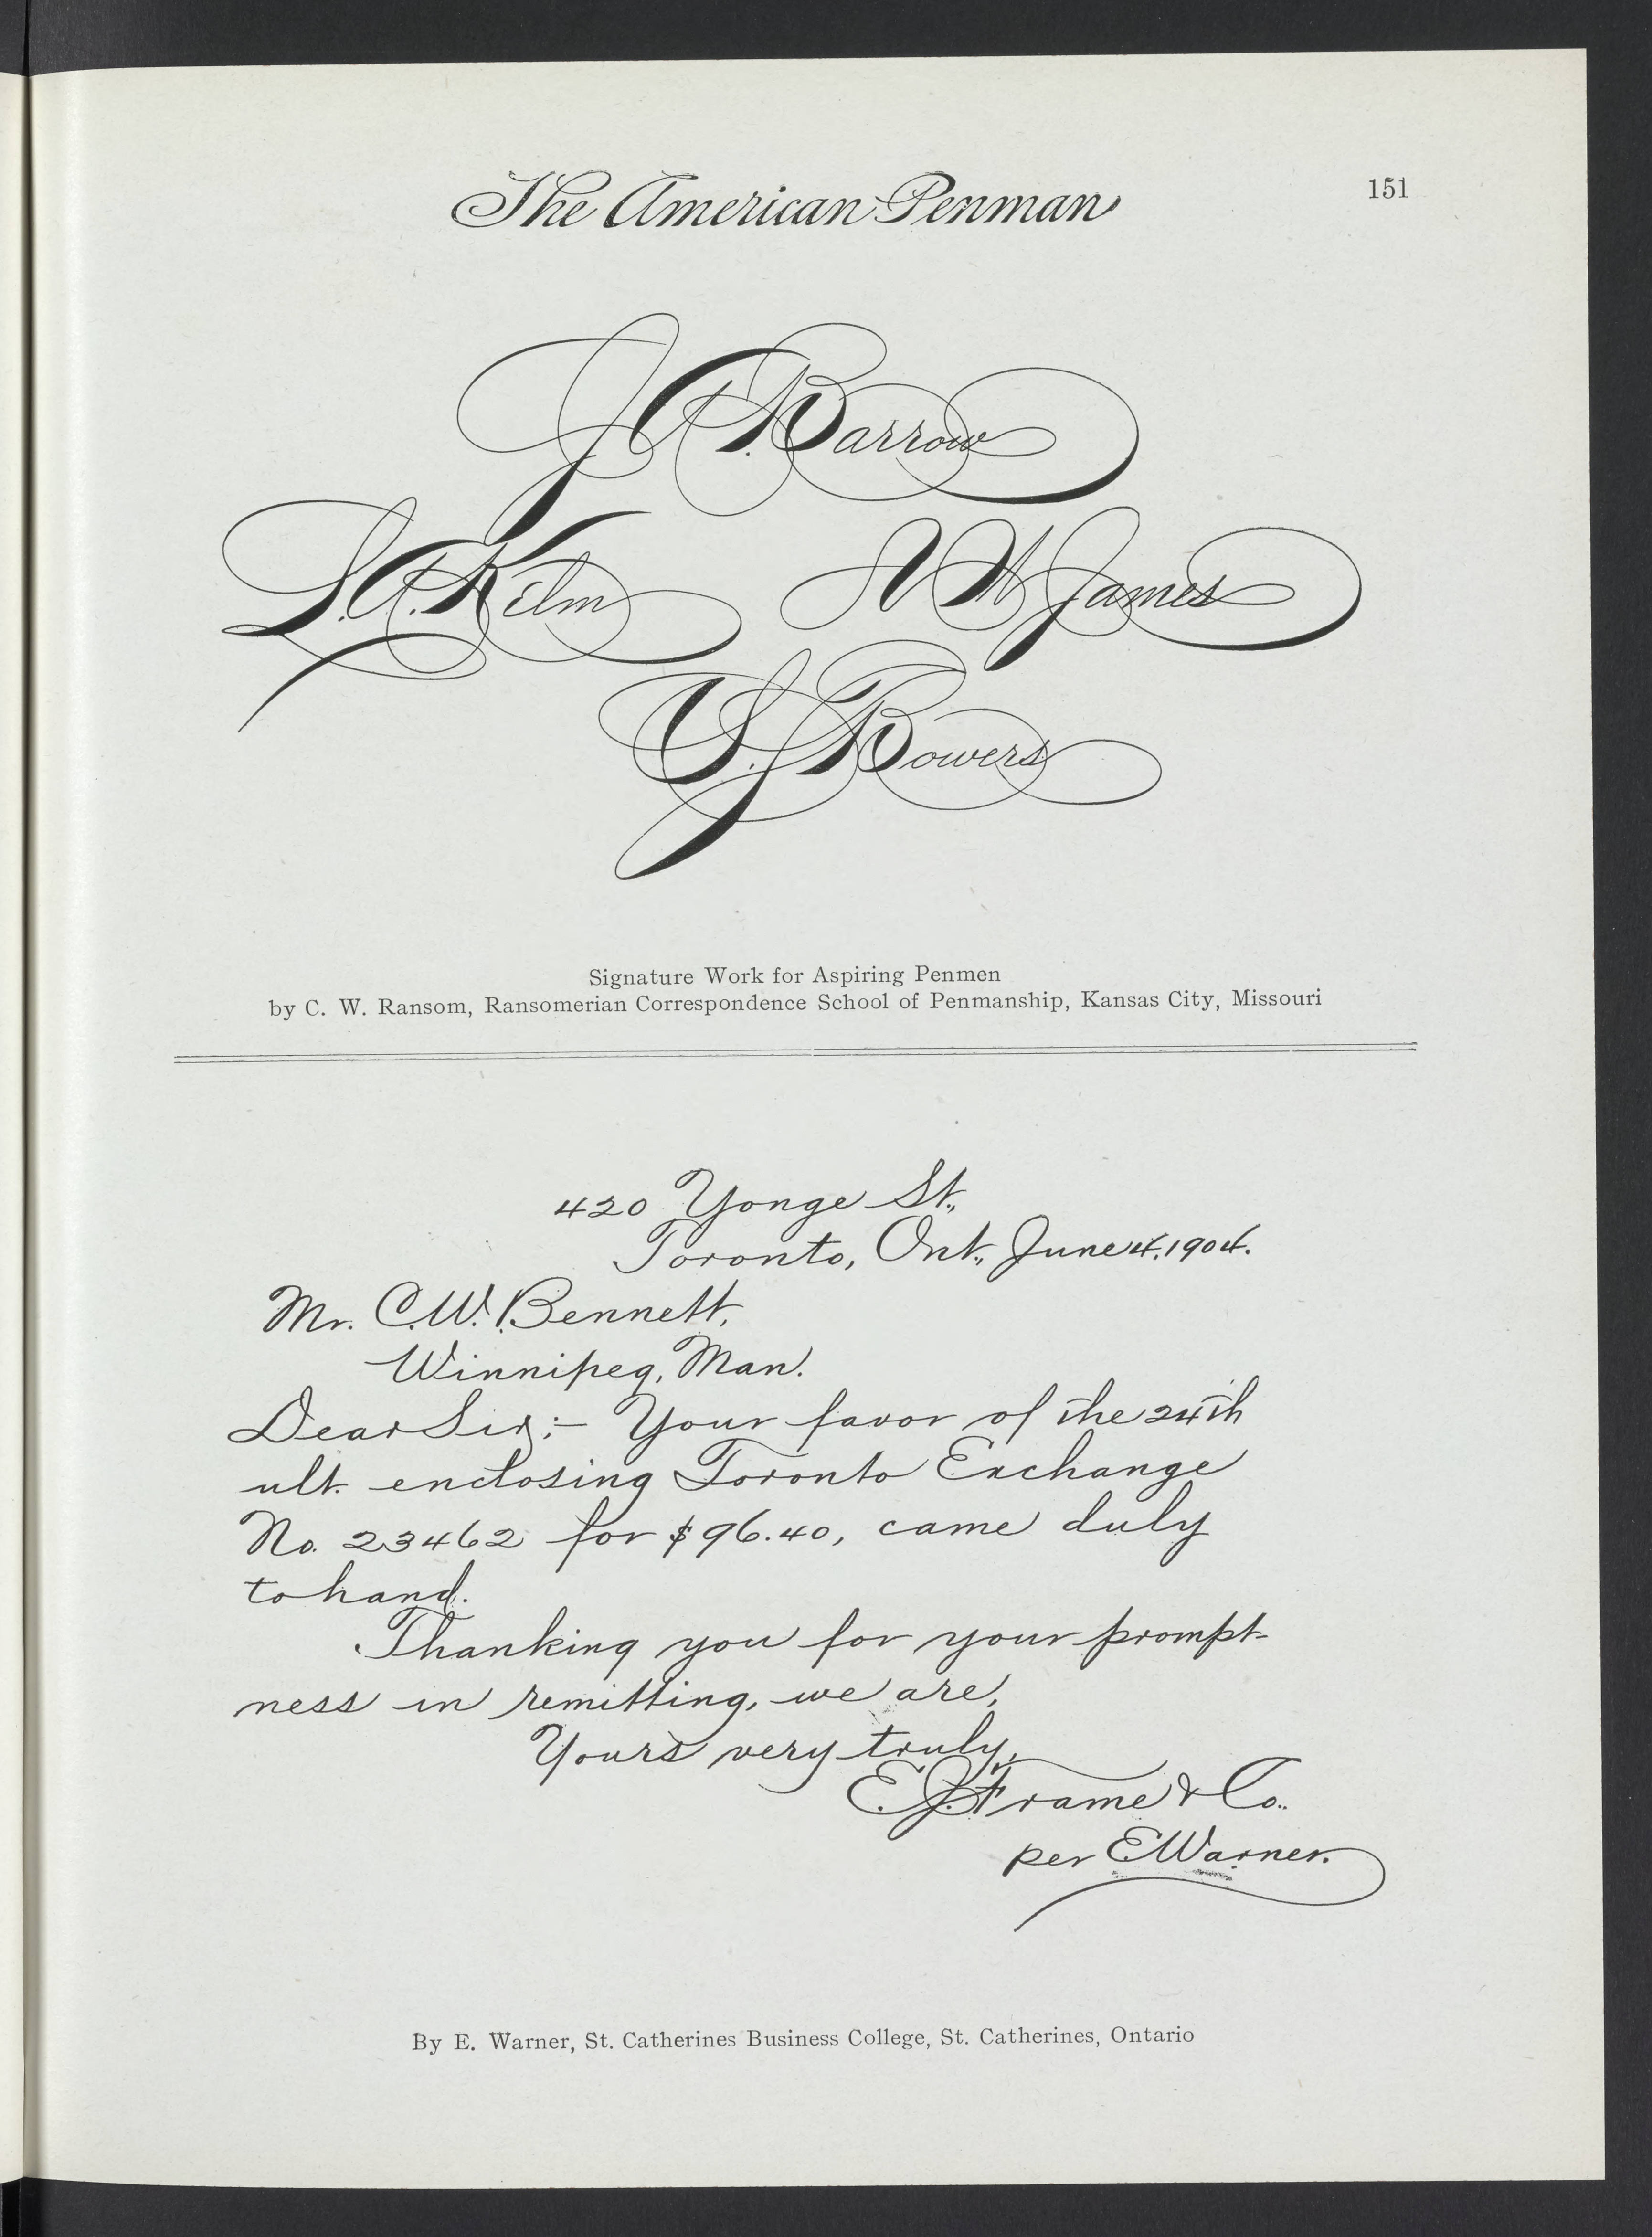 The American Penman
151
J. A. Barrow
L. A. Kelm
W. H. James
S. J. Bowers
Signature Work for Aspiring Penmen
by C. W. Ransom, Ransomerian Correspondence School of Penmanship, Kansas City, Missouri
420 Yonge St.,
Toronto, Ont., June 4, 1904.
Mr. C. W. Bennett,
Winnipeg, Man.
Dear Sir:- Your favor of the 24th
ult. enclosing Toronto Exchange
No. 23462 for $96.40, came duly
to hand.
Thanking you for your prompt-
ness in remitting, we are,
Yours very truly,
E. J. Frame & Co.
per E Warner.
By E. Warner, St. Catherines Business College, St. Catherines, Ontario